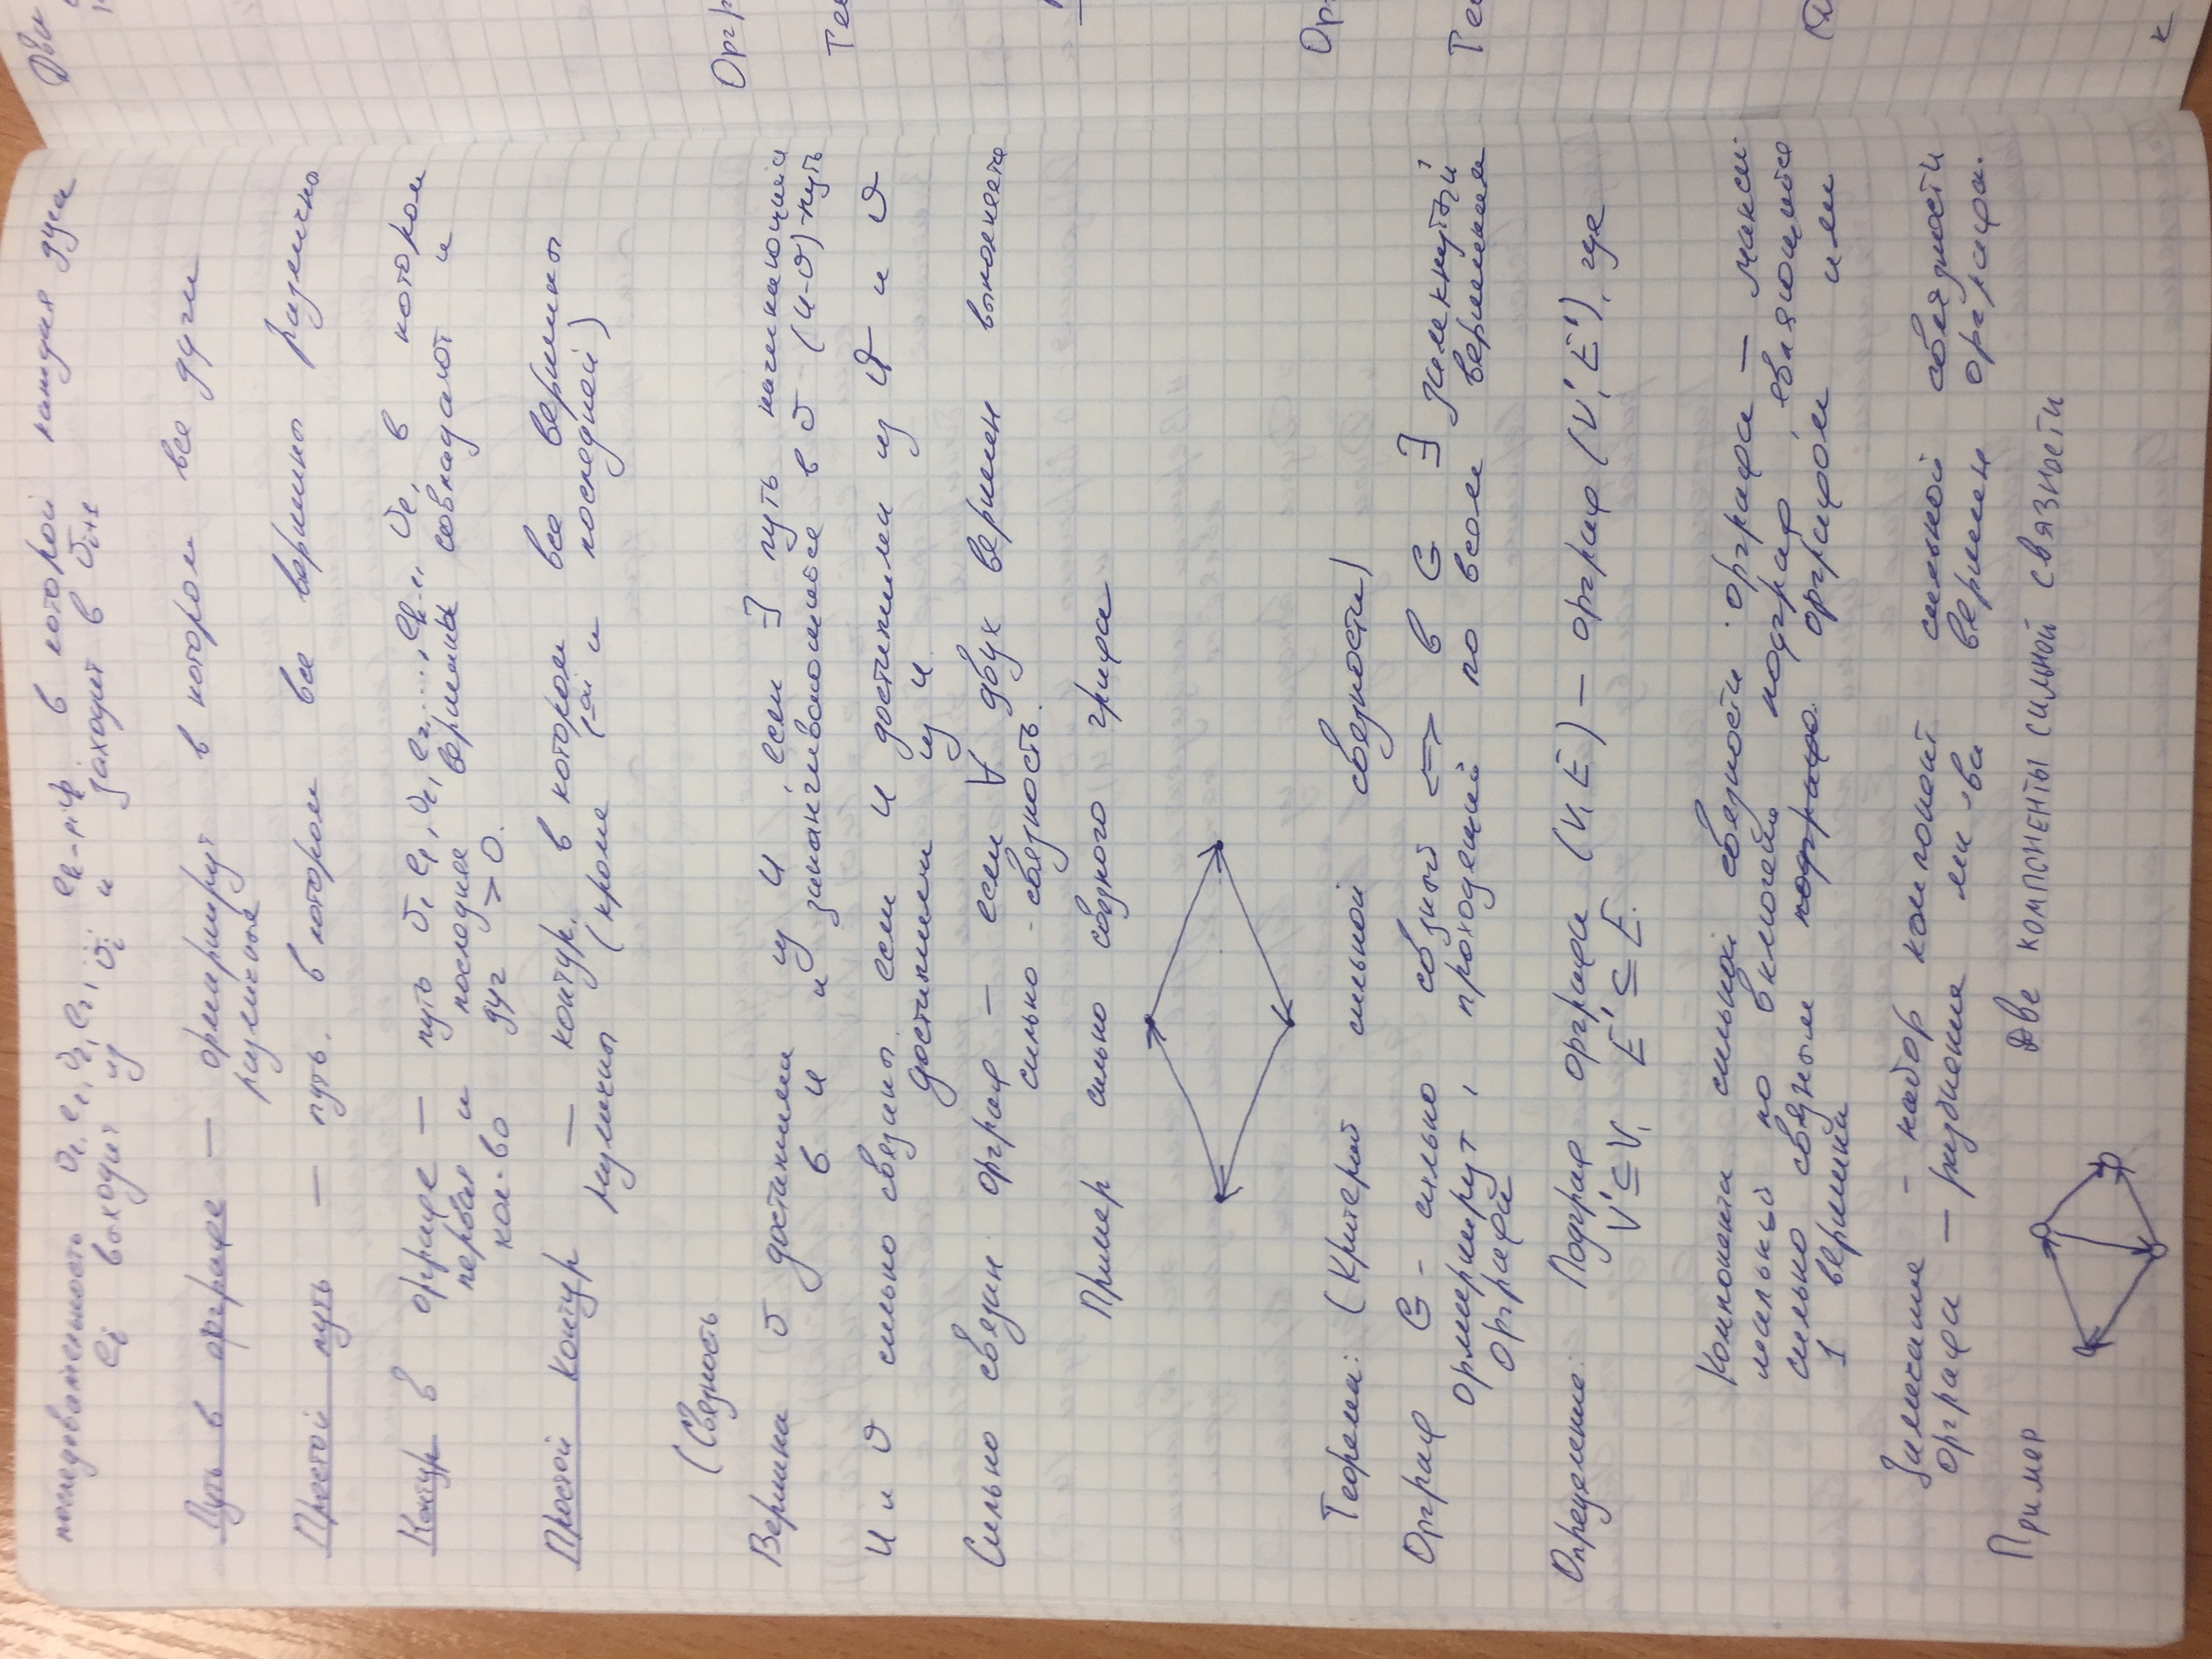 последовательность v₁, e₁, v₂, e₂, ... eₖ₋₁, vₖ в которой каждая дуга
eᵢ выходит из vᵢ и заходит в vᵢ₊₁
Путь в орграфе — ормаршрут в котором все дуги
различные
Простой путь — путь, в котором все вершины различны
Контур в орграфе — путь v₁ e₁, v₂, e₂, ..., eₖ₋₁, v₁, в котором
первая и последняя вершины совпадают и
кол-во дуг > 0.
Простой контур — контур, в котором все вершины
различны (кроме 1ой и последней)
(Связность
Вершина v достижима из u, если ∃ путь начинающийся
в u и заканчивающийся в v (u-v)-путь
u и v сильно связаны, если u достижима из v и v
достижима из u.
Сильно связан орграф — если ∀ двух вершин выполняется
сильно - связность.
Пример сильно связного графа
Теорема: (Критерий сильной связности)
Орграф G - сильно связный ⟺ в G ∃ замкнутый
ормаршрут, проходящий по всем вершинам
орграфа
Определение: Подграф орграфа (V, E) — орграф (V', E'), где
V' ⊆ V, E' ⊆ E.
Компонента сильной связности орграфа — макси-
мальный по включению подграф, являющийся
сильно связным орграфом или
1 вершина
Замечание - набор компонент сильной связности
орграфа — разбиение мн-ва вершин орграфа.
Пример
Две компоненты сильной связности